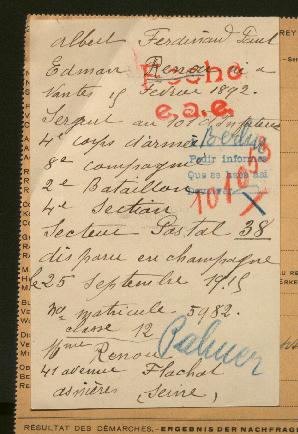 Albert Ferdinand Paul
Edmon Renou né a
Nantes 15 Février 1892.
Sergent au 101 d'infanterie
4e corps d'armée
8e compagnie
2e Bataillon
4e Section
Secteur Postal 38
disparu en champagne
le 25 Septembre 1915
No matricule 5982.
classe 12
Mme Renou
41 avenue Flachat
asnières (Seine)
e.a.e.
Berlin
Pour informer
Palmer
RÉSULTAT DES DÉMARCHES.-ERGEBNIS DER NACHFRAG